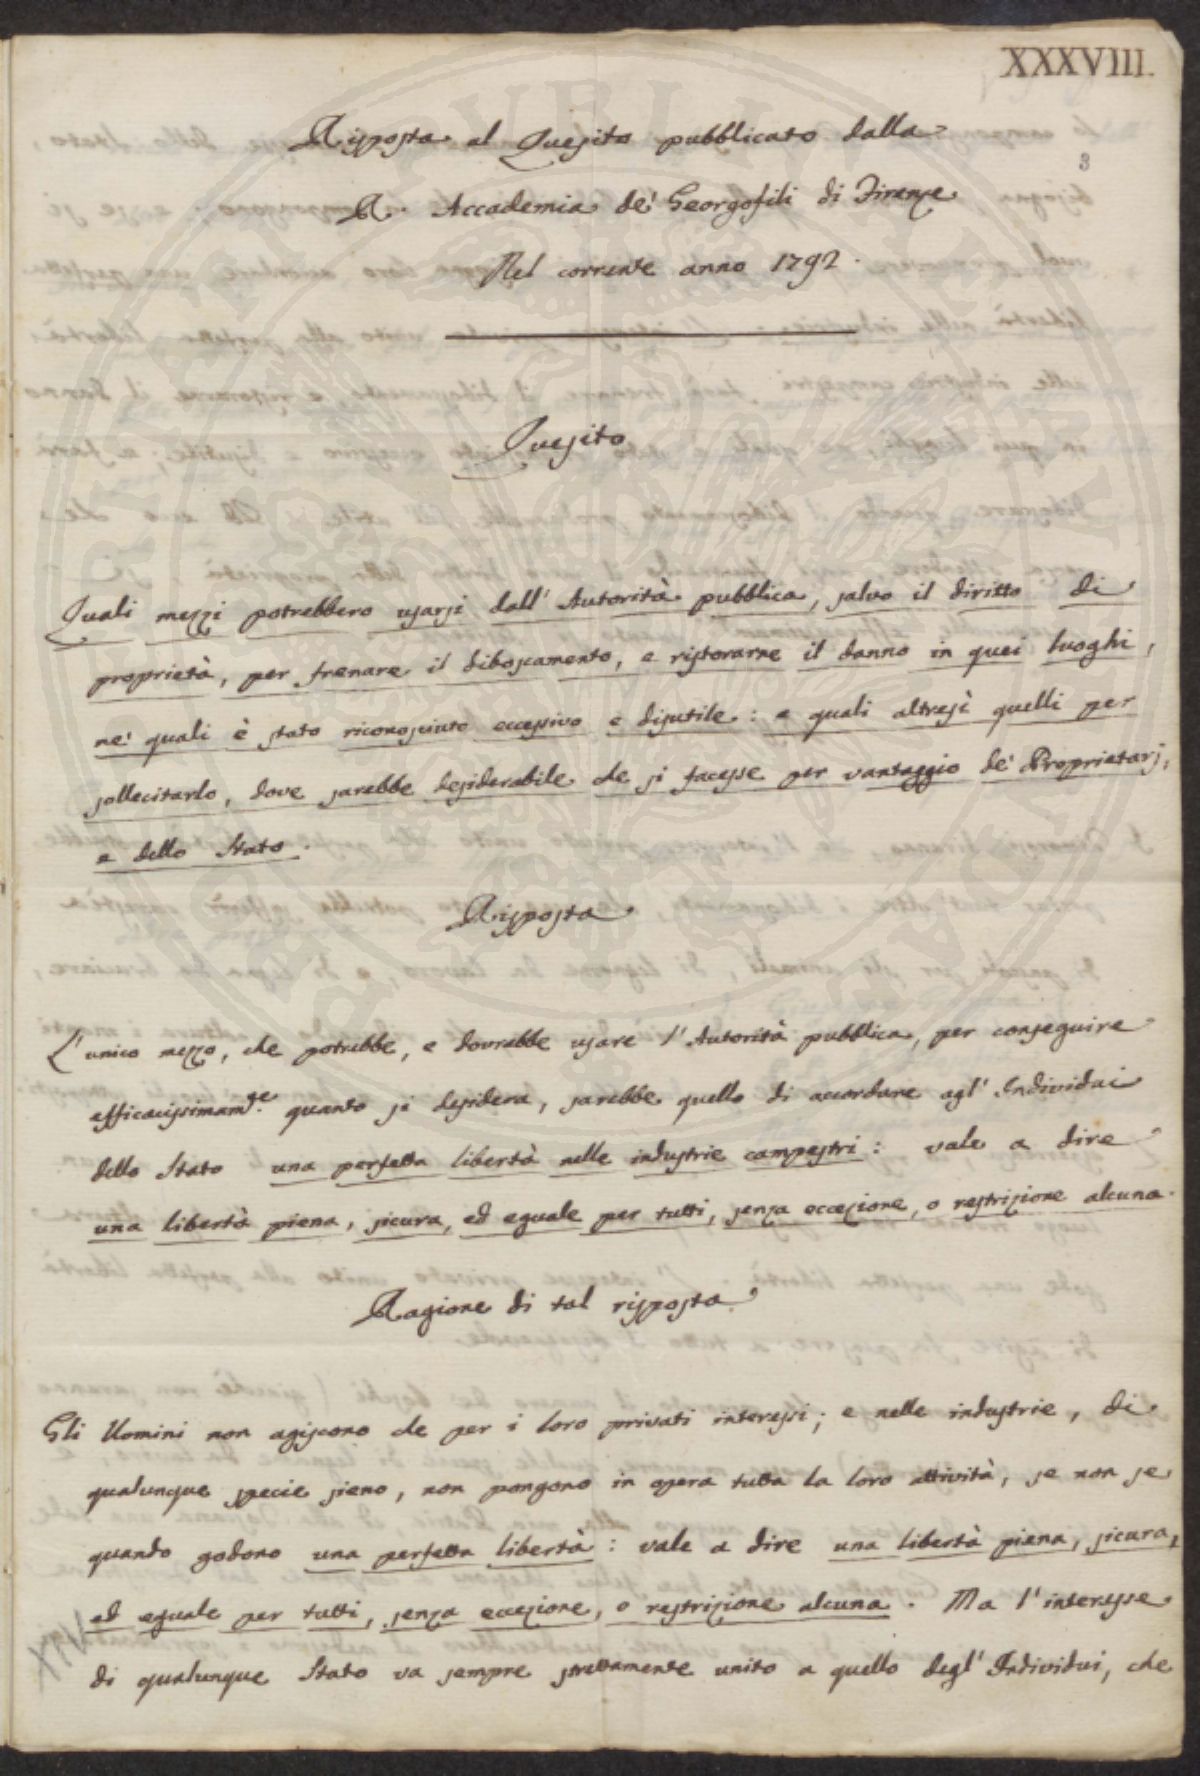 XXXVIII.
3
Risposta al Quesito pubblicato dalla
R. Accademia de' Georgofili di Firenze
Nel corrente anno 1792.
Quesito
Quali mezzi potrebbero usarsi dall' Autorità pubblica, salvo il diritto di
proprietà, per frenare il diboscamento, e ristorarne il danno in quei luoghi,
ne' quali è stato riconosciuto eccessivo e disutile: e quali altresì quelli per
sollecitarlo, dove sarebbe desiderabile che si facesse per vantaggio de' Proprietarj,
e dello Stato.
Risposta
L'unico mezzo, che potrebbe, e dovrebbe usare l'Autorità pubblica, per conseguire
efficacissimam.te quanto si desidera, sarebbe quello di accordare agl' Individui
dello Stato una perfetta libertà nelle industrie campestri: vale a dire
una libertà piena, sicura, ed eguale per tutti, senza eccezione, o restrizione alcuna.
Ragione di tal risposta
Gli Uomini non agiscono che per i loro privati interessi; e nelle industrie, di
qualunque specie sieno, non pongono in opera tutta la loro attività, se non se
quando godono una perfetta libertà: vale a dire una libertà piena, sicura,
ed eguale per tutti, senza eccezione, o restrizione alcuna. Ma l'interesse
di qualunque Stato va sempre strettamente unito a quello degl' Individui, che